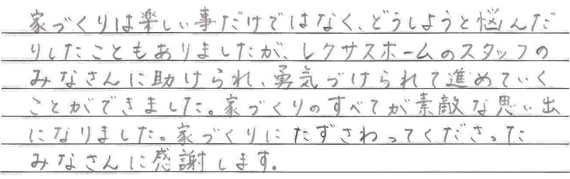 家づくりは楽しい事だけではなく、どうしようと悩んだ
りしたこともありましたが、レクサスホームのスタッフの
みなさんに助けられ、勇気づけられて進めていく
ことができました。家づくりのすべてが素敵な思い出
になりました。家づくりにたずさわってくださった
みなさんに感謝します。